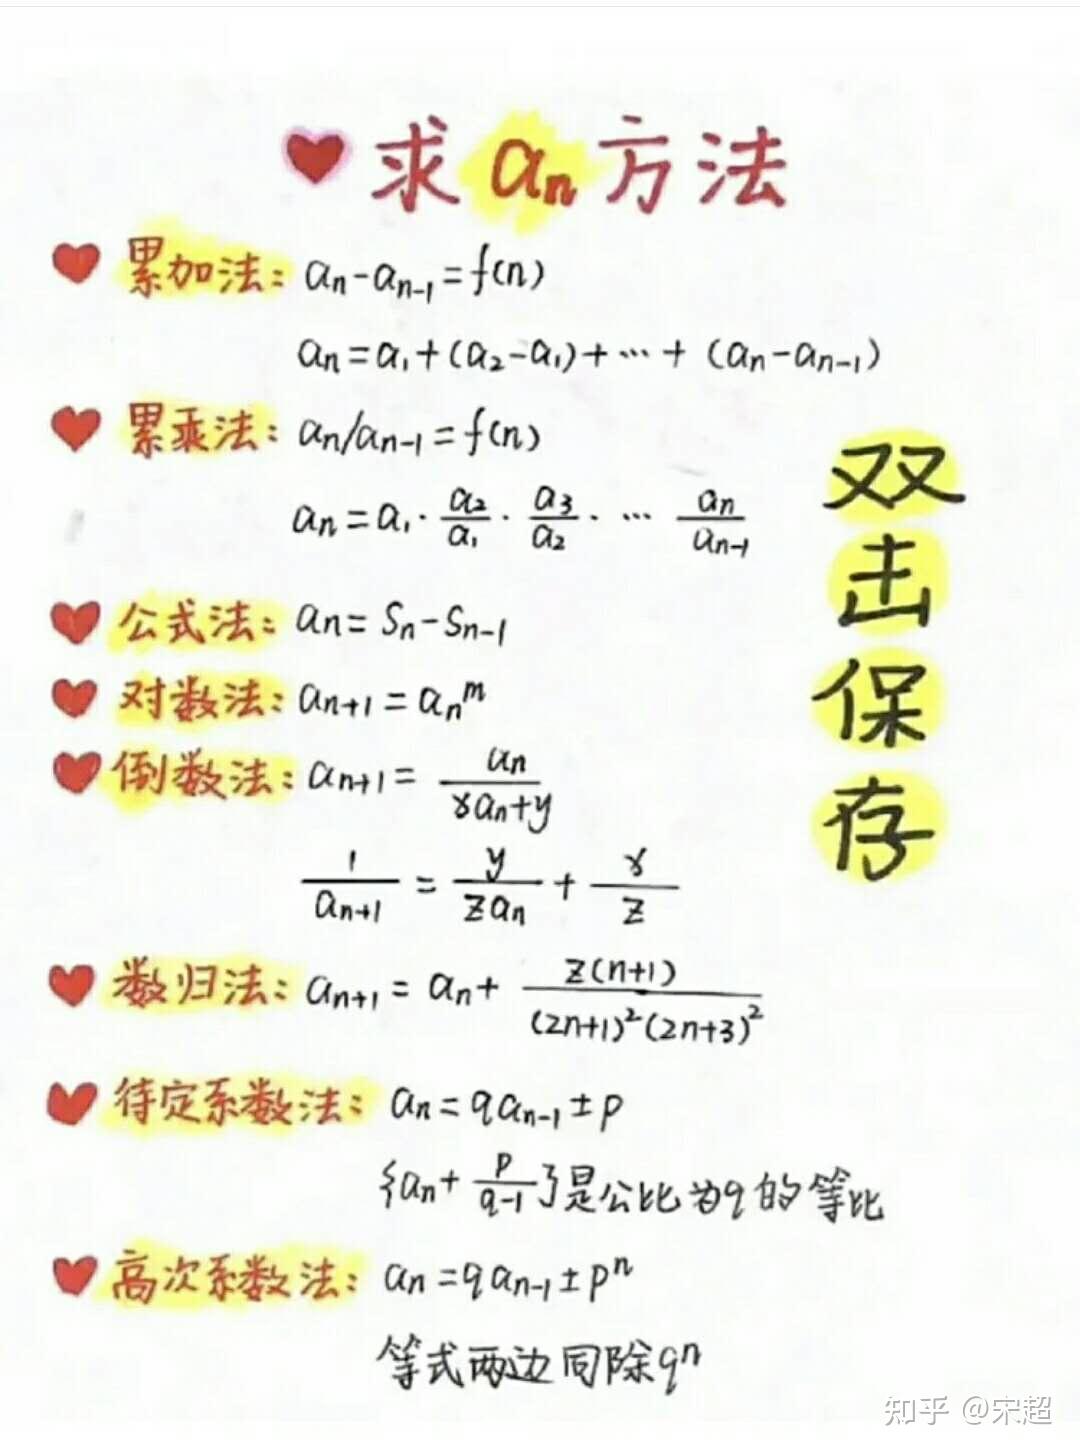 求 aₙ 方法
累加法: aₙ-aₙ₋₁=f(n)
aₙ=a₁+(a₂-a₁)+…+(aₙ-aₙ₋₁)
累乘法: aₙ/aₙ₋₁=f(n)
aₙ=a₁·a₂/a₁·a₃/a₂·…aₙ/aₙ₋₁
公式法: aₙ=Sₙ-Sₙ₋₁
对数法: aₙ₊₁=aₙᵐ
倒数法: aₙ₊₁=aₙ/(xaₙ+y)
1/aₙ₊₁=y/(zaₙ)+x/z
数归法: aₙ₊₁=aₙ+z(n+1)/((2n+1)²(2n+3)²)
待定系数法: aₙ=qaₙ₋₁±p
{aₙ+p/(q-1)}是公比为q的等比
高次系数法: aₙ=qaₙ₋₁±pⁿ
等式两边同除qⁿ
双
击
保
存
知乎 @宋超